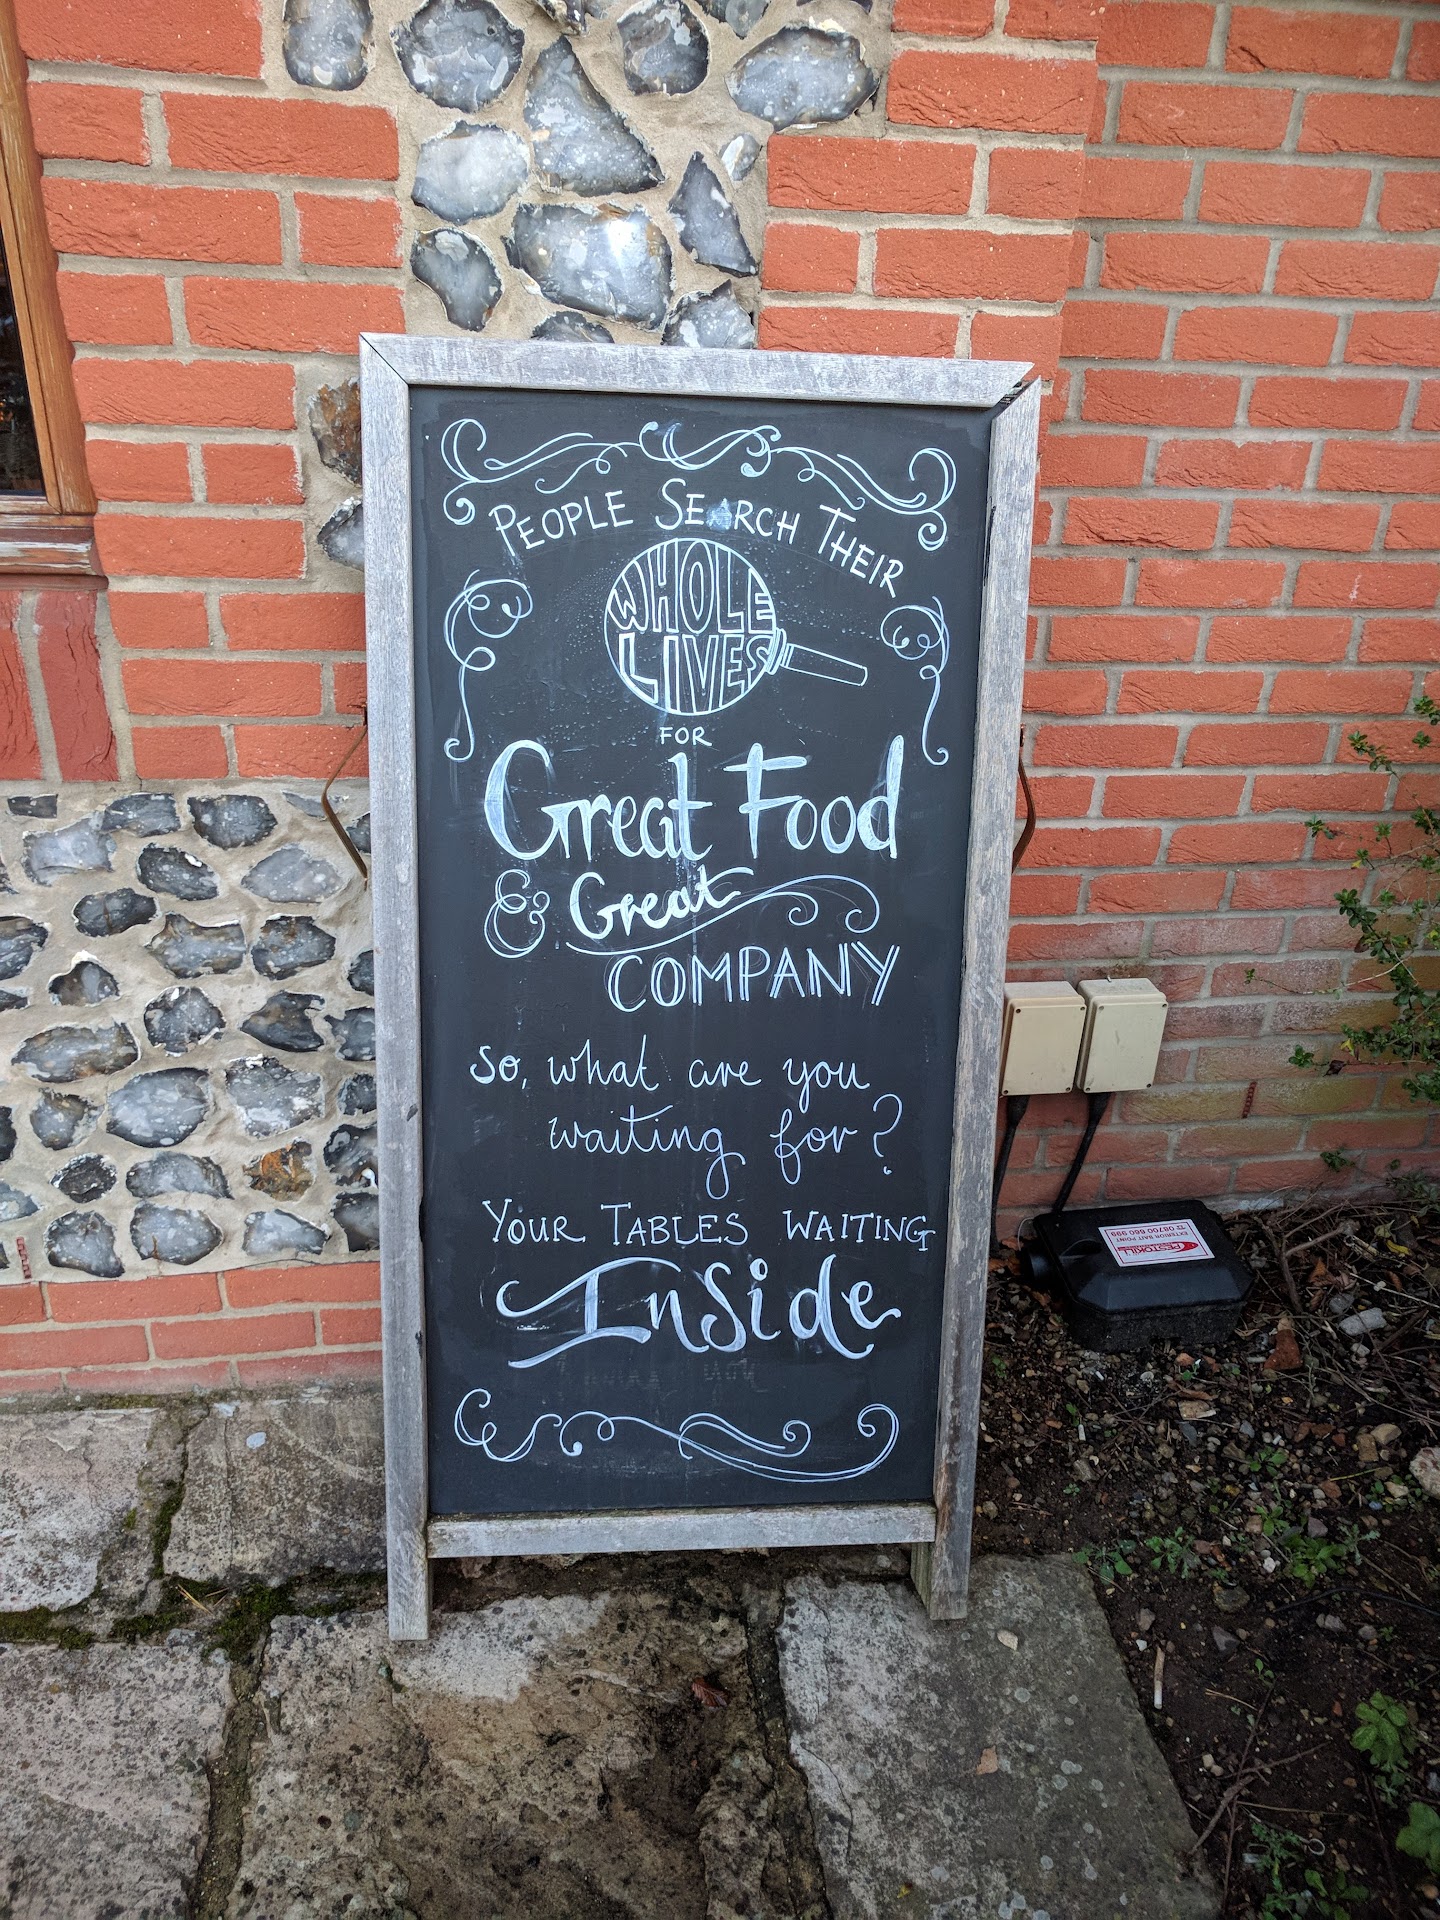 PEOPLE SEARCH THEIR
WHOLE
LIVES
FOR
Great Food
& Great
COMPANY
So, what are you
waiting for?
YOUR TABLES WAITING
Inside
PESTOKILL
EXTERIOR BAIT POINT
☎ 08700 660 999